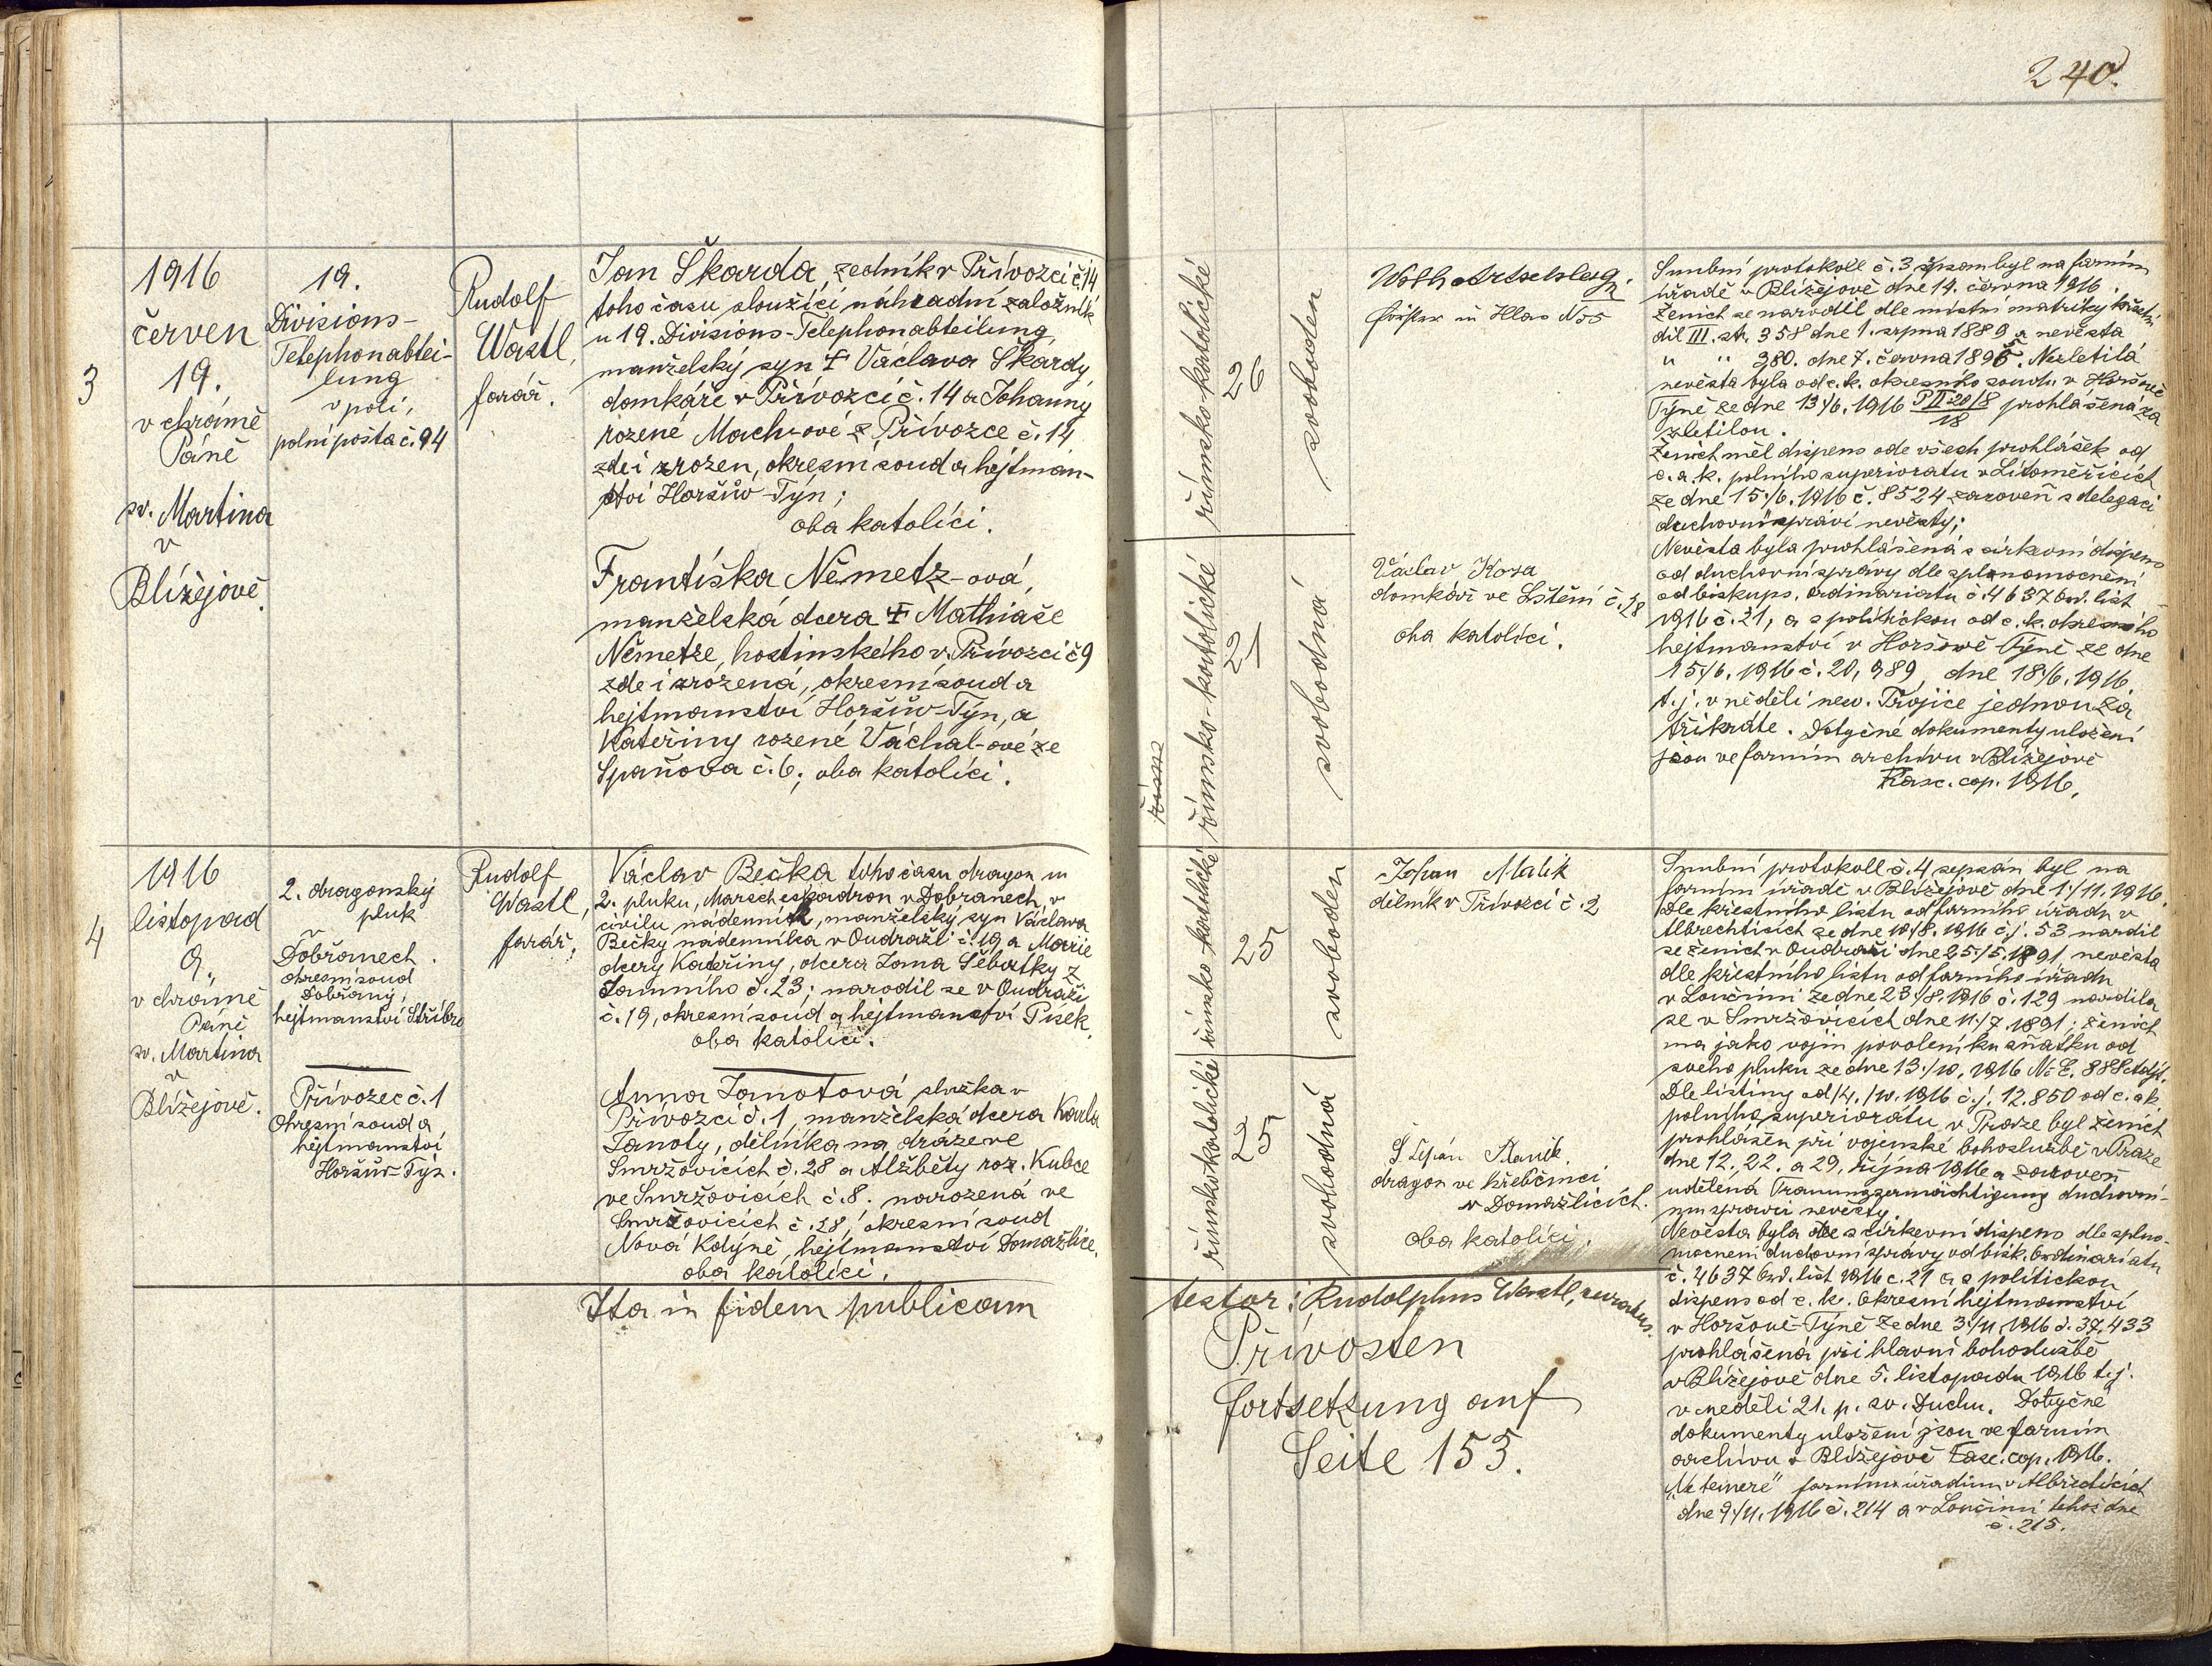 240.
3
1916
červen
19.
v chrámě
Páně
sv. Martina
v
Blížejově.
19.
Divisions-
Telephonabtei-
lung
v poli,
polní pošta č. 94
Rudolf
Wastl,
farář.
Jan Škarda, zedník v Přívozci č. 14
toho času sloužící náhradní záložník
u 19. Divisions-Telephonabteilung,
manželský syn † Václava Škardy,
domkáře v Přívozci č. 14 a Johanny
rozené Mach-ové z Přívozce č. 14
zde i zrozen, okresní soud a hejtman-
ství Horšův-Týn;
oba katolíci.
Františka Němetz-ová,
manželská dcera † Mathiaše
Němetze, hostinského v Přívozci č 9
zde i zrozená, okresní soud a
hejtmanství Horšův-Týn, a
Kateřiny rozené Váchal-ové ze
Spaňova č. 6; oba katolíci.
římsko-katolické
26
svoboden
římsko-katolické
21
svobodná
in Hlas N 55
Václav Kosa
domkář ve Lštění č. 18
oba katolíci.
Snubní protokoll č. 3 sepsán byl na farním
úřadě v Blížejově dne 14. června 1916.
Ženich se narodil dle místní matriky křestní
díl III. str. 358 dne 1. srpna 1889 a nevěsta
" " 380. dne 7. června 1895. Nezletilá
nevěsta byla od c. k. okresního soudu v Horšově
Týně ze dne 13/6. 1916 P II 20/8 prohlášená za
18
zletilou.
Ženich měl dispens ode všech prohlášek od
c. a. k. polního superioratu v Litoměřicích
ze dne 15/6. 1916 č. 8524 zároveň s delegací
duchovní správí nevěsty;
Nevěsta byla prohlášená s církevní dispens
od duchovní správy dle splnomocnění
od biskups. ordinariatu č. 4637 Ord. list
1916 č. 21, a s politickou od c. k. okresního
hejtmanství v Horšově Týně ze dne
15/6. 1916 č. 20,989, dne 18/6. 1916
t. j. v neděli nejsv. Trojice jednou za
třikráte. Dotyčné dokumenty uloženi
jsou ve farním archivu v Blížejově
Fasc. cop. 1916.
4
1916
listopad
9.
v chrámě
Páně
sv. Martina
v
Blížejově.
2. dragonský
pluk
v
Dobřanech.
okresní soud
Dobřany,
hejtmanství Stříbro
Přívozec č. 1
Okresní soud a
hejtmanství
Horšův-Týn.
Rudolf
Wastl,
farář.
Václav Bečka toho času dragon u
2. pluku, Marscheskadron v Dobřanech, v
civilu nádenník, manželský syn Václava
Bečky nádenníka v Oudraži č. 19 a Marie
dcery Kateřiny, dcera Jana Šebatky z
Tamního č. 23; narodil se v Oudraži
č. 19, okresní soud a hejtmanství Písek,
oba katolíci.
Anna Janotová služka v
Přívozci č. 1, manželská dcera Karla
Janoty, dělníka na dráze ve
Smržovicích č. 28 a Alžběty roz. Kubce
ve Smržovicích č. 8. narozená ve
Smržovicích č. 28, okresní soud
Nová Kdýně, hejtmanství Domažlice,
oba katolíci.
římsko-katolické
25
svoboden
římsko-katolické
25
svobodná
Johan Malik
dělník v Přívozci č. 2
Štěpán
dragon ve hřebčinci
v Domažlicích.
oba katolíci.
Snubní protokoll č. 4 sepsán byl na
farním úřadě v Blížejově dne 1./11. 1916.
Dle křestního listu od farního úřadu v
Albrechticích ze dne 10/8. 1916 č. j. 53 narodil
se ženich v Oudraži dne 25/5. 1891 nevěsta
dle křestního listu od farního úřadu
v Loučimi ze dne 23/8. 1916 č. 129 narodila
se v Smržovicích dne 11/7. 1891; ženich
má jako vojín povolení ku sňatku od
svého pluku ze dne 13/10. 1916
Dle listiny od 14./10. 1916 č. j. 12.850 od c. a k.
polního superiorátu v Praze byl ženich
prohlášen při vojenské bohoslužbě v Praze
dne 12., 22. a 29. října 1916 a zároveň
udělená Trauungsermächtigung duchovní-
mu správci nevěsty.
Nevěsta byla dle s církevní dispens dle splno-
mocnění duchovní správy od bisk. Ordinariatu
č. 4637 Ord. list 1916 č. 21 a s politickou
dispens od c. k. Okresní hejtmanství
v Horšově-Týně ze dne 3./11. 1916 č. 37.433
prohlášená při hlavní bohoslužbě
v Blížejově dne 5. listopadu 1916 t. j.
v neděli 21. p. sv. Duchu. Dotyčné
dokumenty uloženi jsou ve farním
archivu v Blížejově Fasc. cop. 1916.
„Ne temere" farním úřadům v Albrechticích
dne 9./11. 1916 č. 214 a v Loučimi téhož dne
č. 215.
Ita in fidem publicam
testor: Rudolphus Wastl, curatus.
Přívosten
fortsetzung auf
Seite 153.